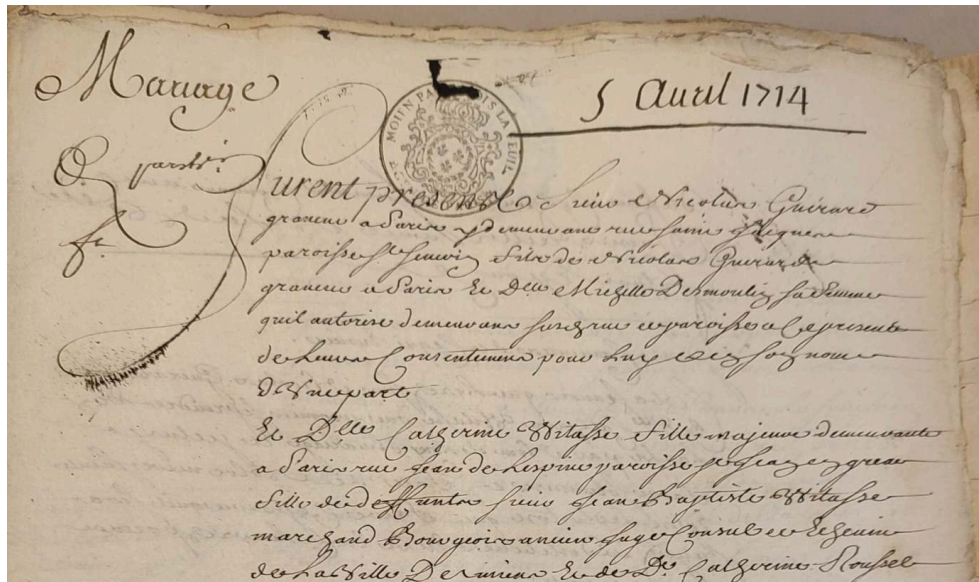 Mariage
5 Avril 1714
MOIIN PA
furent present Sieur Nicolas Guerard
graveur a Paris y demeurant rue saint Jacques
paroisse St Severin fils de Nicolas Guerard
graveur a Paris et Dlle Michelle Desmoulin sa femme
quil autorise demeurant susd rue et paroisse a ce presente
de Leurs Consentemens pour luy et en son nom
d'Une part
Et Dlle Catherine Witasse fille majeure demeurante
a Paris rue Jean de Lespine paroisse St Jean en greve
fille de deffunts sieur Jean Baptiste Witasse
marchand Bourgeois ancien Juge Consul et Echevin
de La Ville Damiens et de De Catherine Roussel